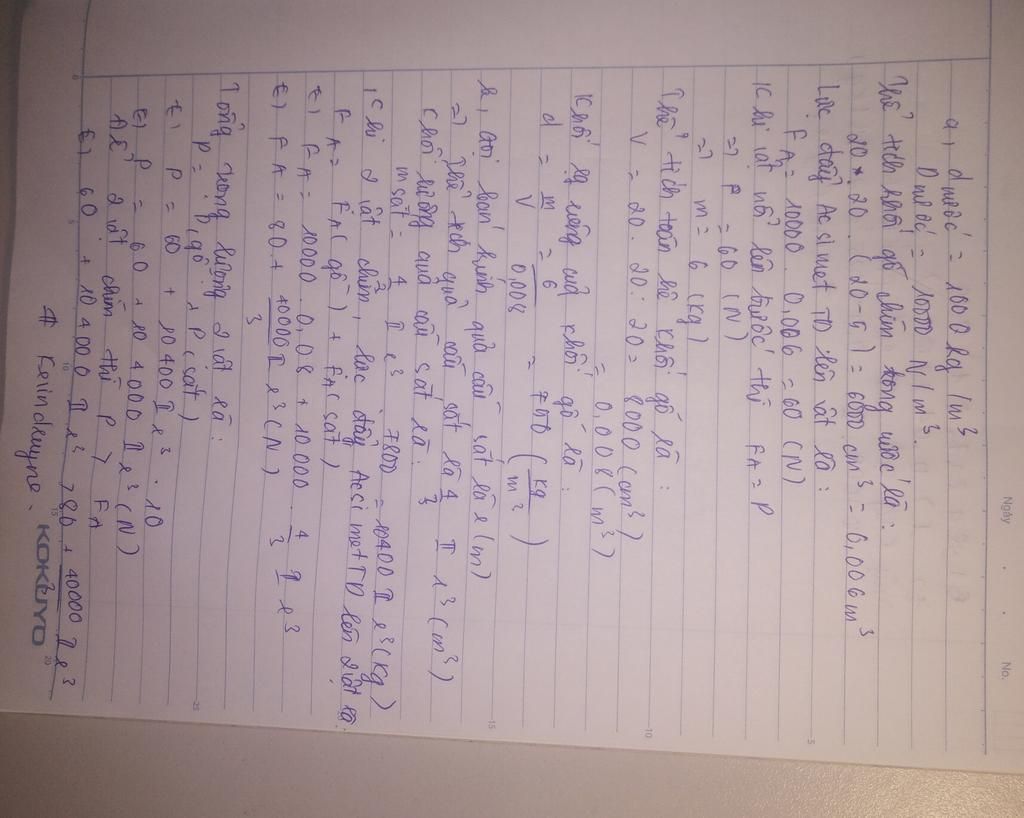 Ngày . . No.
a, d nước = 1000 kg/m³
D nước = 10000 N/m³
Thể tích khối gỗ chìm trong nước là:
20 . 20 . (20-5) = 6000 cm³ = 0,006 m³
Lực đẩy Acsimet TD lên vật là:
FA = 10000 . 0,006 = 60 (N)
Khi vật nổi lên trước thì FA = P
=> P = 60 (N)
=> m = 6 (kg)
Thể tích toàn bộ khối gỗ là:
V = 20 . 20 . 20 = 8000 (cm³)
= 0,008 (m³)
Khối lg riêng của khối gỗ là:
d = m/V = 6/0,008 = 750 (kg/m³)
b, Gọi bán kính quả cầu sắt là r (m)
=> Thể tích quả cầu sắt là 4/3 π r³ (m³)
Khối lượng quả cầu sắt là:
m sắt = 4/3 π r³ 7800 = 10400 π r³ (kg)
Khi 2 vật chìm, lực đẩy Acsimet TD lên 2 vật là:
FA = FA (gỗ) + FA (sắt)
(t) FA = 10000 . 0,08 + 10000 . 4/3 π r³
(t) FA = 80 + 40000/3 π r³ (N)
Tổng trọng lượng 2 vật là:
P = P (gỗ) + P (sắt)
(t) P = 60 + 10400 π r³ . 10
(t) P = 60 + 104000 π r³ (N)
Để 2 vật chìm thì P > FA
(t) 60 + 104000 π r³ > 80 + 40000/3 π r³
KOKUYO